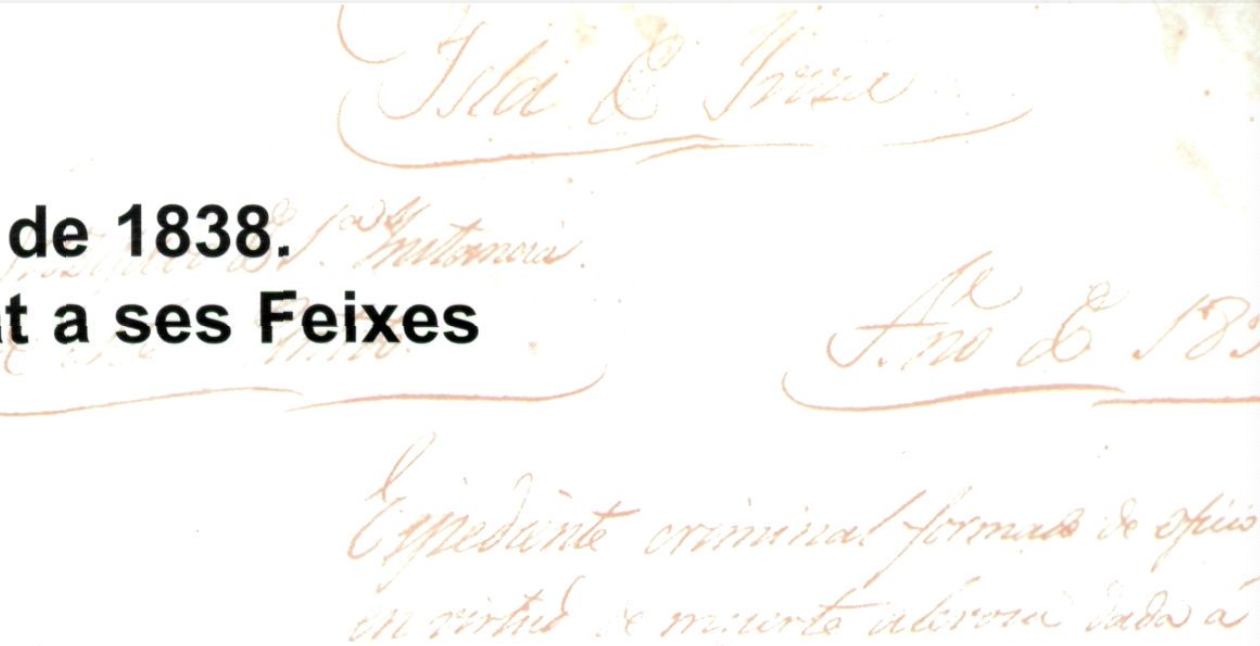 Isla de Iviza
de 1838.
Juzgado de 1ª Instancia.
t a ses Feixes
Año de 183
Expediente criminal formado de oficio
en virtud de muerte alevosa dada á